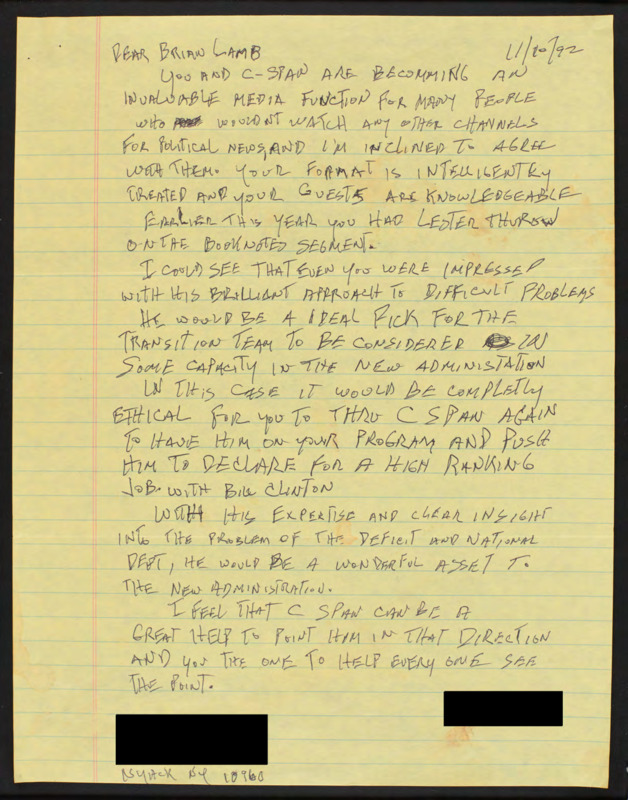 DEAR BRIAN LAMB 11/10/92
YOU AND C-SPAN ARE BECOMMING AN
INVALUABLE MEDIA FUNCTION FOR MANY PEOPLE
WHO WOULDNT WATCH ANY OTHER CHANNELS
FOR POLITICAL NEWS, AND I'M INCLINED TO AGREE
WITH THEM. YOUR FORMAT IS INTELLIGENTLY
TREATED AND YOUR GUESTS ARE KNOWLEDGEABLE
EARLIER THIS YEAR YOU HAD LESTER THUROW
ON THE BOOKNOTES SEGMENT.
I COULD SEE THAT EVEN YOU WERE IMPRESSED
WITH HIS BRILLIANT APPROACH TO DIFFICULT PROBLEMS
HE WOULD BE A IDEAL PICK FOR THE
TRANSITION TEAM TO BE CONSIDERED IN
SOME CAPACITY IN THE NEW ADMINISTATION
IN THIS CASE IT WOULD BE COMPLETLY
ETHICAL FOR YOU TO THRU C SPAN AGAIN
TO HAVE HIM ON YOUR PROGRAM AND PUSH
HIM TO DECLARE FOR A HIGH RANKING
JOB. WITH BILL CLINTON
WITH HIS EXPERTISE AND CLEAR INSIGHT
INTO THE PROBLEM OF THE DEFICIT AND NATIONAL
DEPT, HE WOULD BE A WONDERFUL ASSET TO
THE NEW ADMINISTRATION.
I FEEL THAT C SPAN CAN BE A
GREAT HELP TO POINT HIM IN THAT DIRECTION
AND YOU THE ONE TO HELP EVERY ONE SEE
THE POINT.
NYACK NY 10960